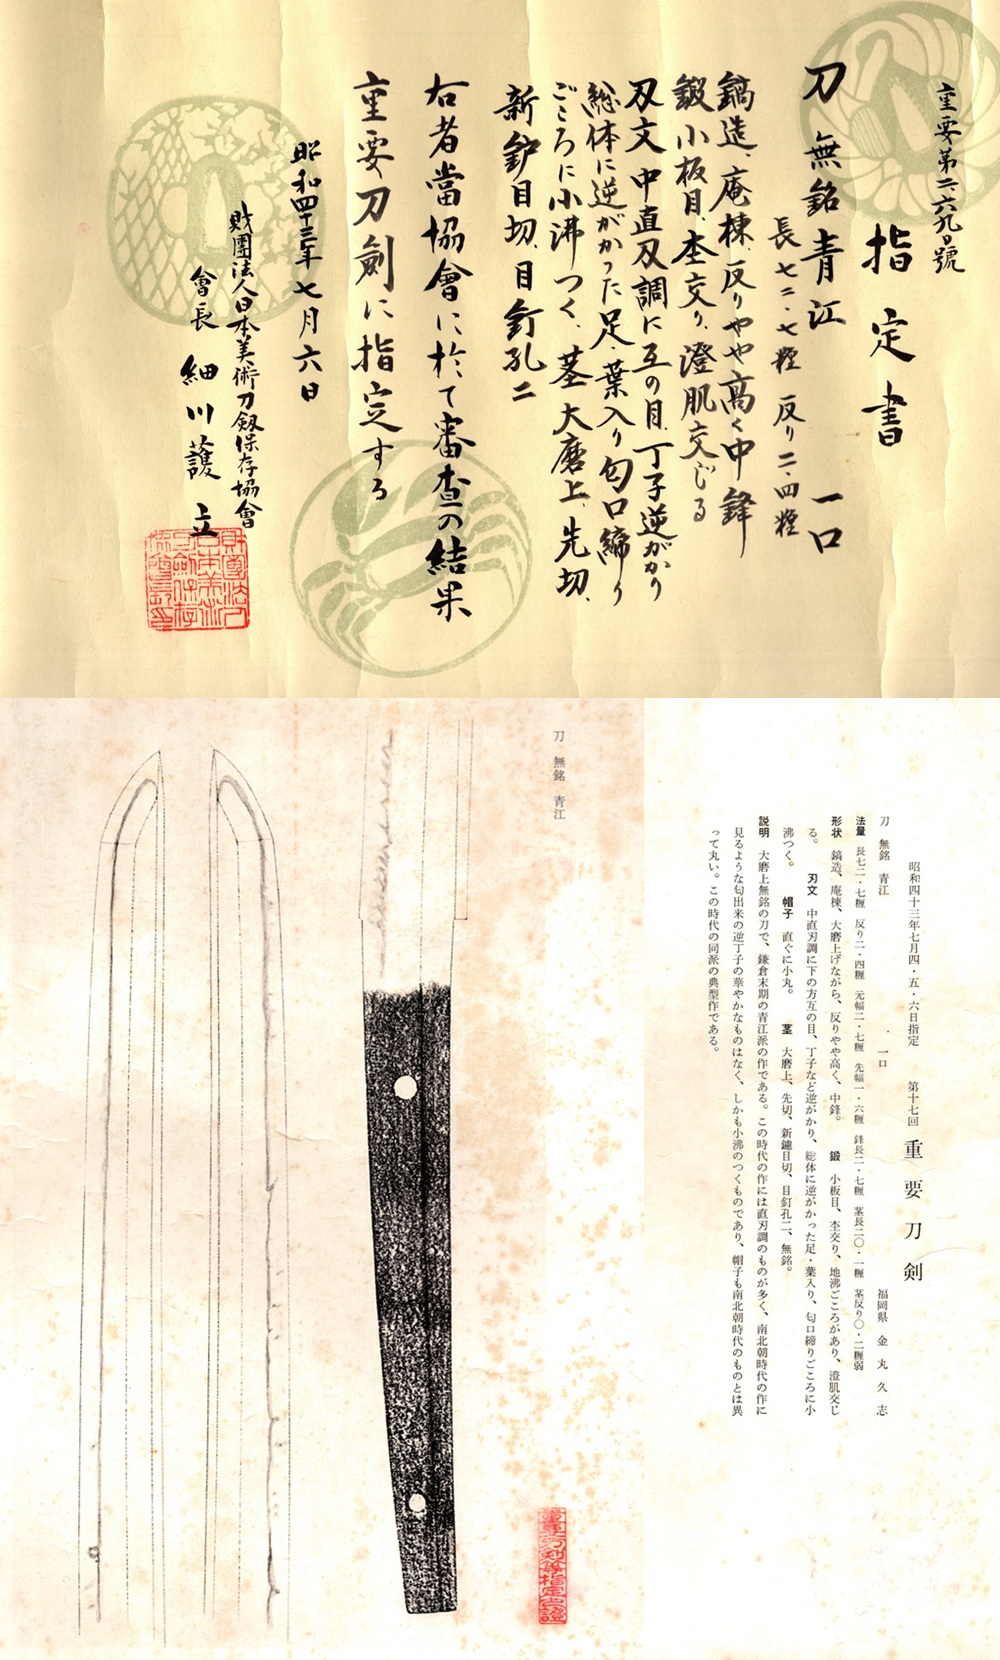 重要第二六九〇號
指定書
刀 無銘 青江 一口
長 七二・七糎 反り 二・四糎
鎬造、庵棟、反りやや高く中鋒
鍛 小板目、杢交り、澄肌交じる
刃文 中直刃調に互の目、丁子逆がかり
総体に逆がかった足・葉入り匂口締り
ごころに小沸つく、茎 大磨上、先切、
新鑢目切、目釘孔二
右者當協會に於て審査の結果
重要刀劍に指定する
昭和四十三年七月六日
財團法人日本美術刀劔保存協會
會長 細川護立
昭和四十三年七月四・五・六日指定 第十七回 重要刀剣
刀 無銘 青江 一口 福岡県 金丸久志
法量 長七二・七糎 反り二・四糎 元幅二・七糎 先幅一・六糎 鋒長二・七糎 茎長二〇・一糎 茎反り〇・二糎弱
形状 鎬造、庵棟、大磨上げながら、反りやや高く、中鋒。 鍛 小板目、杢交り、地沸ごころがあり、澄肌交じ
る。 刃文 中直刃調に下の方互の目、丁子など逆がかり、総体に逆がかった足・葉入り、匂口締りごころに小
沸つく。 帽子 直ぐに小丸。 茎 大磨上、先切、新鑢目切、目釘孔二、無銘。
説明 大磨上無銘の刀で、鎌倉末期の青江派の作である。この時代の作には直刃調のものが多く、南北朝時代の作に
見るような匂出来の逆丁子の華やかなものはなく、しかも小沸のつくものであり、帽子も南北朝時代のものとは異
って丸い。この時代の同派の典型作である。
刀 無銘 青江